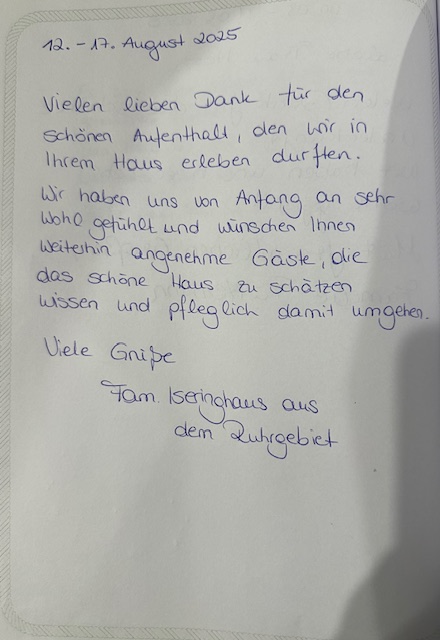 12. - 17. August 2025
Vielen lieben Dank für den
schönen Aufenthalt, den wir in
Ihrem Haus erleben durften.
Wir haben uns von Anfang an sehr
wohl gefühlt und wünschen Ihnen
weiterhin angenehme Gäste, die
das schöne Haus zu schätzen
wissen und pfleglich damit umgehen.
Viele Grüße
Fam. Iseringhaus aus
dem Ruhrgebiet